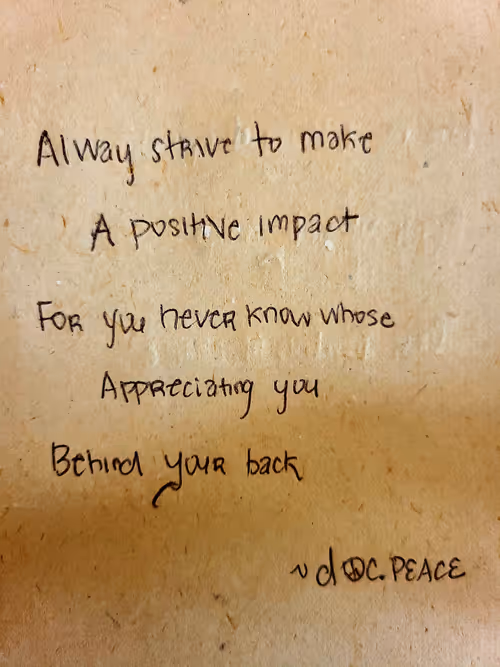 Alway strive to make
A positive impact
For you never know whose
Appreciating you
Behind your back
~ d☮c. PEACE